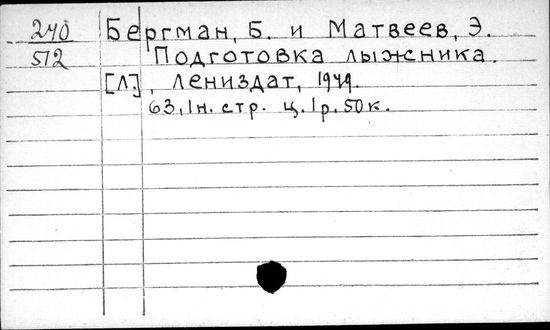 240 Бергман, Б. и Матвеев, Э.
512 Подготовка лыжника.
[Л.], Лениздат, 1949.
63, 1н. стр. ц. 1р. 50к.